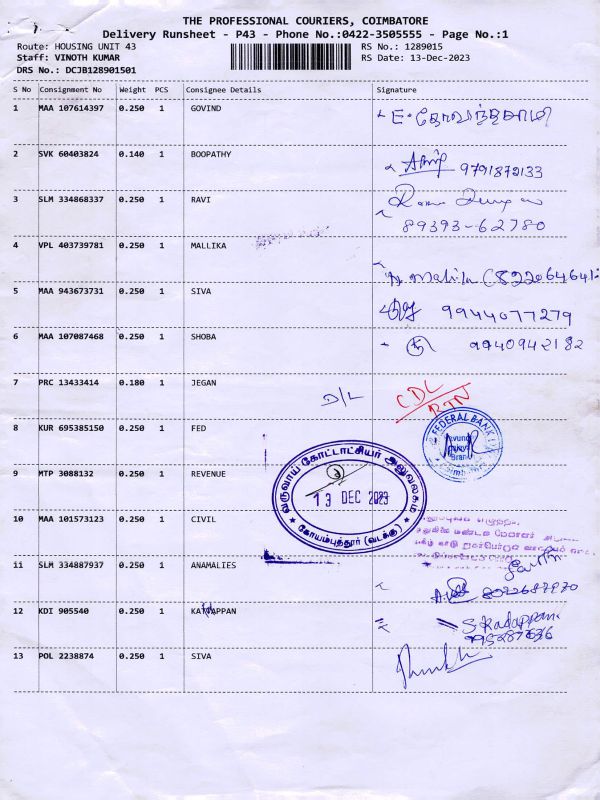 THE PROFESSIONAL COURIERS, COIMBATORE
Delivery Runsheet - P43 - Phone No.:0422-3505555 - Page No.:1
Route: HOUSING UNIT 43 RS No.: 1289015
Staff: VINOTH KUMAR RS Date: 13-Dec-2023
DRS No.: DCJB128901501
S No Consignment No Weight PCS Consignee Details Signature
1 MAA 107614397 0.250 1 GOVIND
2 SVK 60403824 0.140 1 BOOPATHY 9791872133
3 SLM 334868337 0.250 1 RAVI
89393-62780
4 VPL 403739781 0.250 1 MALLIKA
5 MAA 943673731 0.250 1 SIVA 9944077279
6 MAA 107087468 0.250 1 SHOBA 9940942182
7 PRC 13433414 0.180 1 JEGAN D/L CDL
RTN
8 KUR 695385150 0.250 1 FED FEDERAL BANK
9 MTP 3088132 0.250 1 REVENUE
வருவாய் கோட்டாட்சியர் அலுவலகம்
13 DEC 2023
கோயம்புத்தூர் (வடக்கு)
10 MAA 101573123 0.250 1 CIVIL
11 SLM 334887937 0.250 1 ANAMALIES
12 KDI 905540 0.250 1 S.Kadappan
13 POL 2238874 0.250 1 SIVA